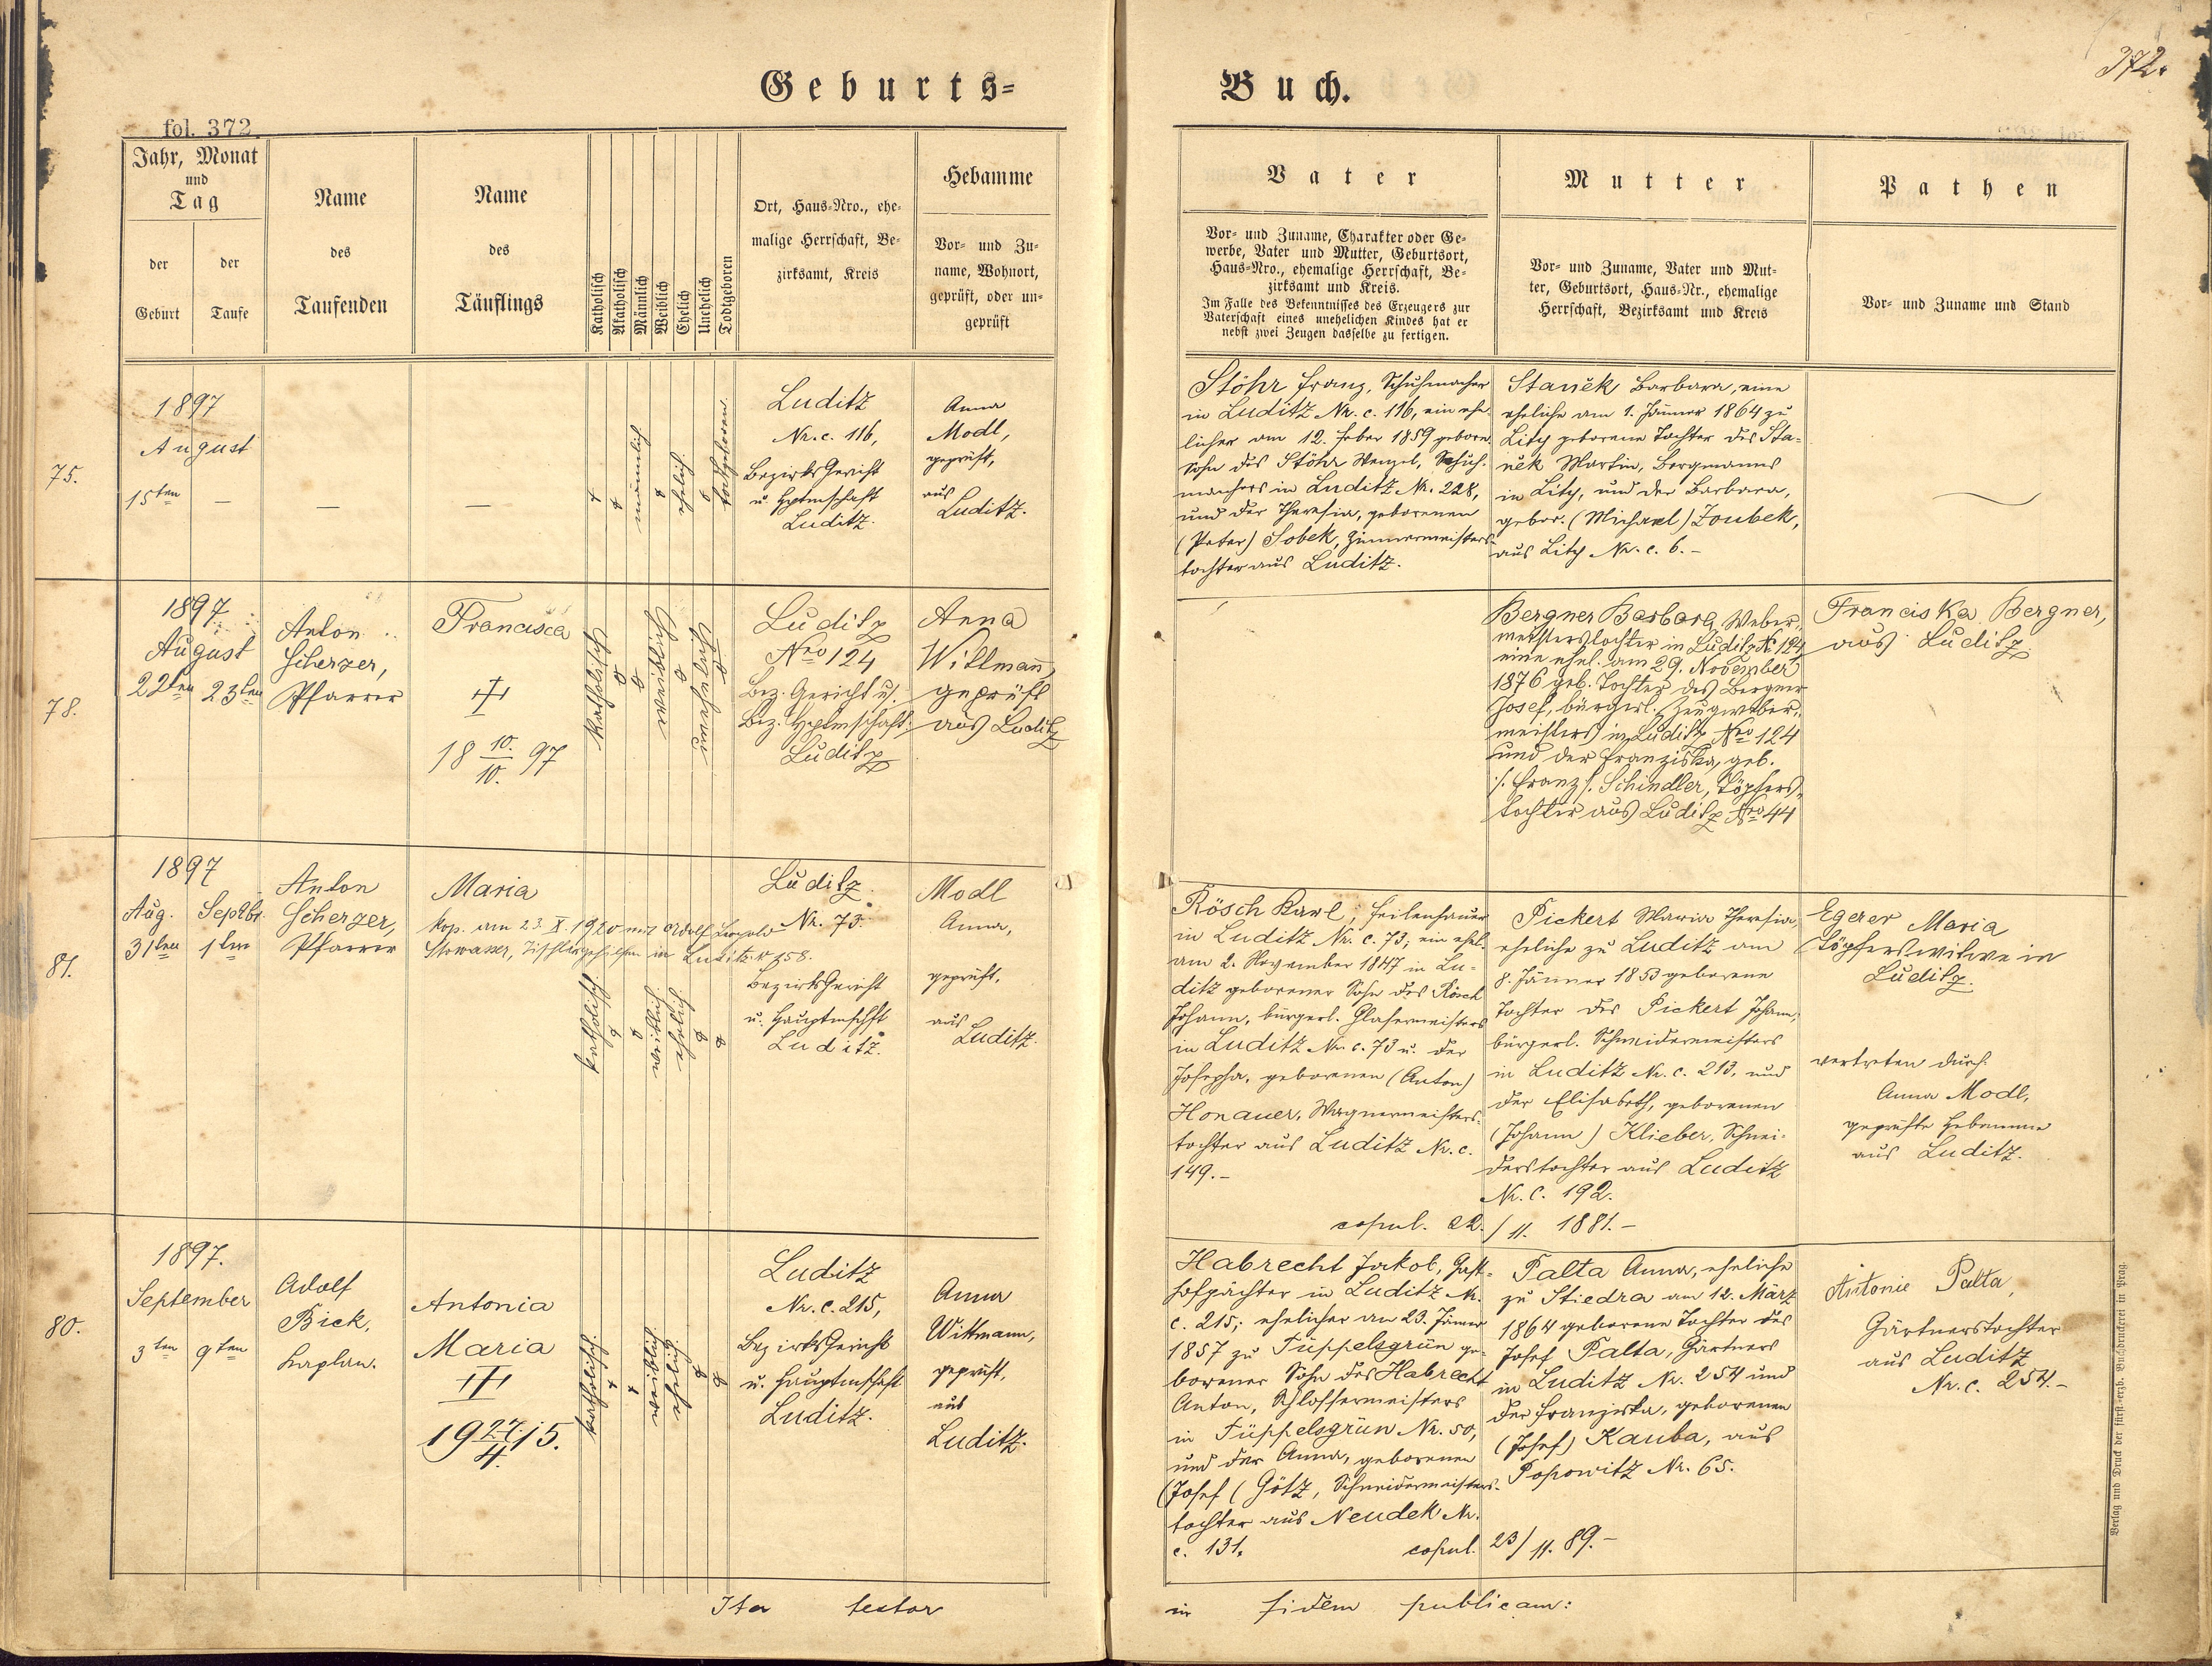 Geburts-
Buch.
372.
fol. 372.
Jahr, Monat
und
Tag
der
Geburt
der
Taufe
Name
des
Taufenden
Name
des
Täuflings
Katholisch
Akatholisch
Männlich
Weiblich
Ehelich
Unehelich
Todtgeboren
Ort, Haus-Nro., ehe-
malige Herrschaft, Be-
zirksamt, Kreis
Hebamme
Vor- und Zu-
name, Wohnort,
geprüft, oder un-
geprüft
Vater
Vor- und Zuname, Charakter oder Ge-
werbe, Vater und Mutter, Geburtsort,
Haus-Nro., ehemalige Herrschaft, Be-
zirksamt und Kreis.
Im Falle des Bekenntnisses des Erzeugers zur
Vaterschaft eines unehelichen Kindes hat er
nebst zwei Zeugen dasselbe zu fertigen.
Mutter
Vor- und Zuname, Vater und Mut-
ter, Geburtsort, Haus-Nr., ehemalige
Herrschaft, Bezirksamt und Kreis
Pathen
Vor- und Zuname und Stand
75.
1897
August
15ten —
—
—
männlich
ehelich
todtgeboren.
Luditz
Nr. c. 116,
Bezirks Gericht
u. Hptmschaft
Luditz.
Anna
Modl,
geprüft,
aus
Luditz.
Stöhr Franz, Schuhmacher
in Luditz Nr. c. 116, ein ehe-
licher am 12. Feber 1859 geborn.
Sohn des Stöhr Wenzel, Schuh-
machers in Luditz Nr. 228,
und der Theresia, geborenen
(Peter) Sobek, Zimmermeisters-
tochter aus Luditz.
Staněk Barbara, eine
eheliche am 1. Jänner 1864 zu
Lity geborene Tochter des Sta-
něk Martin, Bergmanns
in Lity, und der Barbara,
gebor. (Michael) Zoubek,
aus Lity Nr. c. 6.-
78.
1897
August
22ten 23ten
Anton
Scherzer,
Pfarrer
Francisca
18 10./10. 97
katholisch
weiblich
unehelich
Luditz
Nro 124
Bez. Gericht u.
Bez. Hptmschaft
Luditz
Anna
Wittmann,
geprüft
aus Luditz
Bergner Barbara, Weber-
meisterstochter in Luditz Nr. 124
eine ehel. am 29. November
1876 geb. Tochter des Bergner
Josef, bürgerl. Zeugweber-
meisters in Luditz Nro 124
und der Franziska, geb.
/. Franz /. Schindler, Töpfers-
tochter aus Luditz Nro 44
Franciska Bergner,
aus Luditz.
81.
1897
Aug. Septbr.
31ten 1ten
Anton
Scherzer,
Pfarrer
Maria
kop. am 23. X. 1920 mit Adolf Leopold
Stowasser, Tischlergehilfen in Luditz Nr 158.
katholisch
weiblich
ehelich
Luditz.
Nr. 73.
Bezirks Gericht
u. Hauptmschft
Luditz.
Modl
Anna,
geprüft,
aus
Luditz.
Rösch Karl, Feilenhauer
in Luditz Nr. c. 73; ein ehel.
am 2. November 1847 in Lu-
ditz geborener Sohn des Rösch
Johann, bürgerl. Glasermeisters
in Luditz Nr. c. 73 u. der
Josepha, geborenen (Anton)
Honauer, Wagnermeisters-
tochter aus Luditz Nr. c.
149.-
Pickert Maria Theresia,
eheliche zu Luditz am
8. Jänner 1853 geborene
Tochter des Pickert Johann,
bürgerl. Schneidermeisters
in Luditz Nr. c. 213, und
der Elisabeth, geborenen
(Johann) Klieber, Schnei-
derstochter aus Luditz
Nr. c. 192.
copul. 22./11. 1881.-
Egerer Maria
Töpferswitwe in
Luditz.
vertreten durch:
Anna Modl,
geprüfte Hebamme
aus Luditz.
80.
1897.
September
3ten 9ten
Adolf
Bick,
Kaplan.
Antonia
Maria
19 27./4. 15.
katholisch
weiblich
ehelich
Luditz
Nr. c. 215,
Bezirks Gericht
u. Hauptmschaft
Luditz.
Anna
Wittmann,
geprüft,
aus
Luditz.
Habrecht Jakob, Gast-
hofpächter in Luditz Nr.
c. 215; ehelicher am 23. Jänner
1857 zu Tüppelsgrün ge-
borener Sohn des Habrecht
Anton, Schlossermeisters
in Tüppelsgrün Nr. 50,
und der Anna, geborenen
(Josef) Götz, Schneidermeisters-
tochter aus Neudek Nr.
c. 131.
copul. 23/11. 89.-
Palta Anna, eheliche
zu Stiedra am 12. März
1864 geborene Tochter des
Josef Palta, Gärtners
in Luditz Nr. 254 und
der Franziska, geborenen
(Josef) Kauba, aus
Popowitz Nr. 65.
Antonie Palta,
Gärtnerstochter
aus Luditz
Nr. c. 254.-
Ita testor
in fidem publicam:
Verlag und Druck der fürst-erzb. Buchdruckerei in Prag.